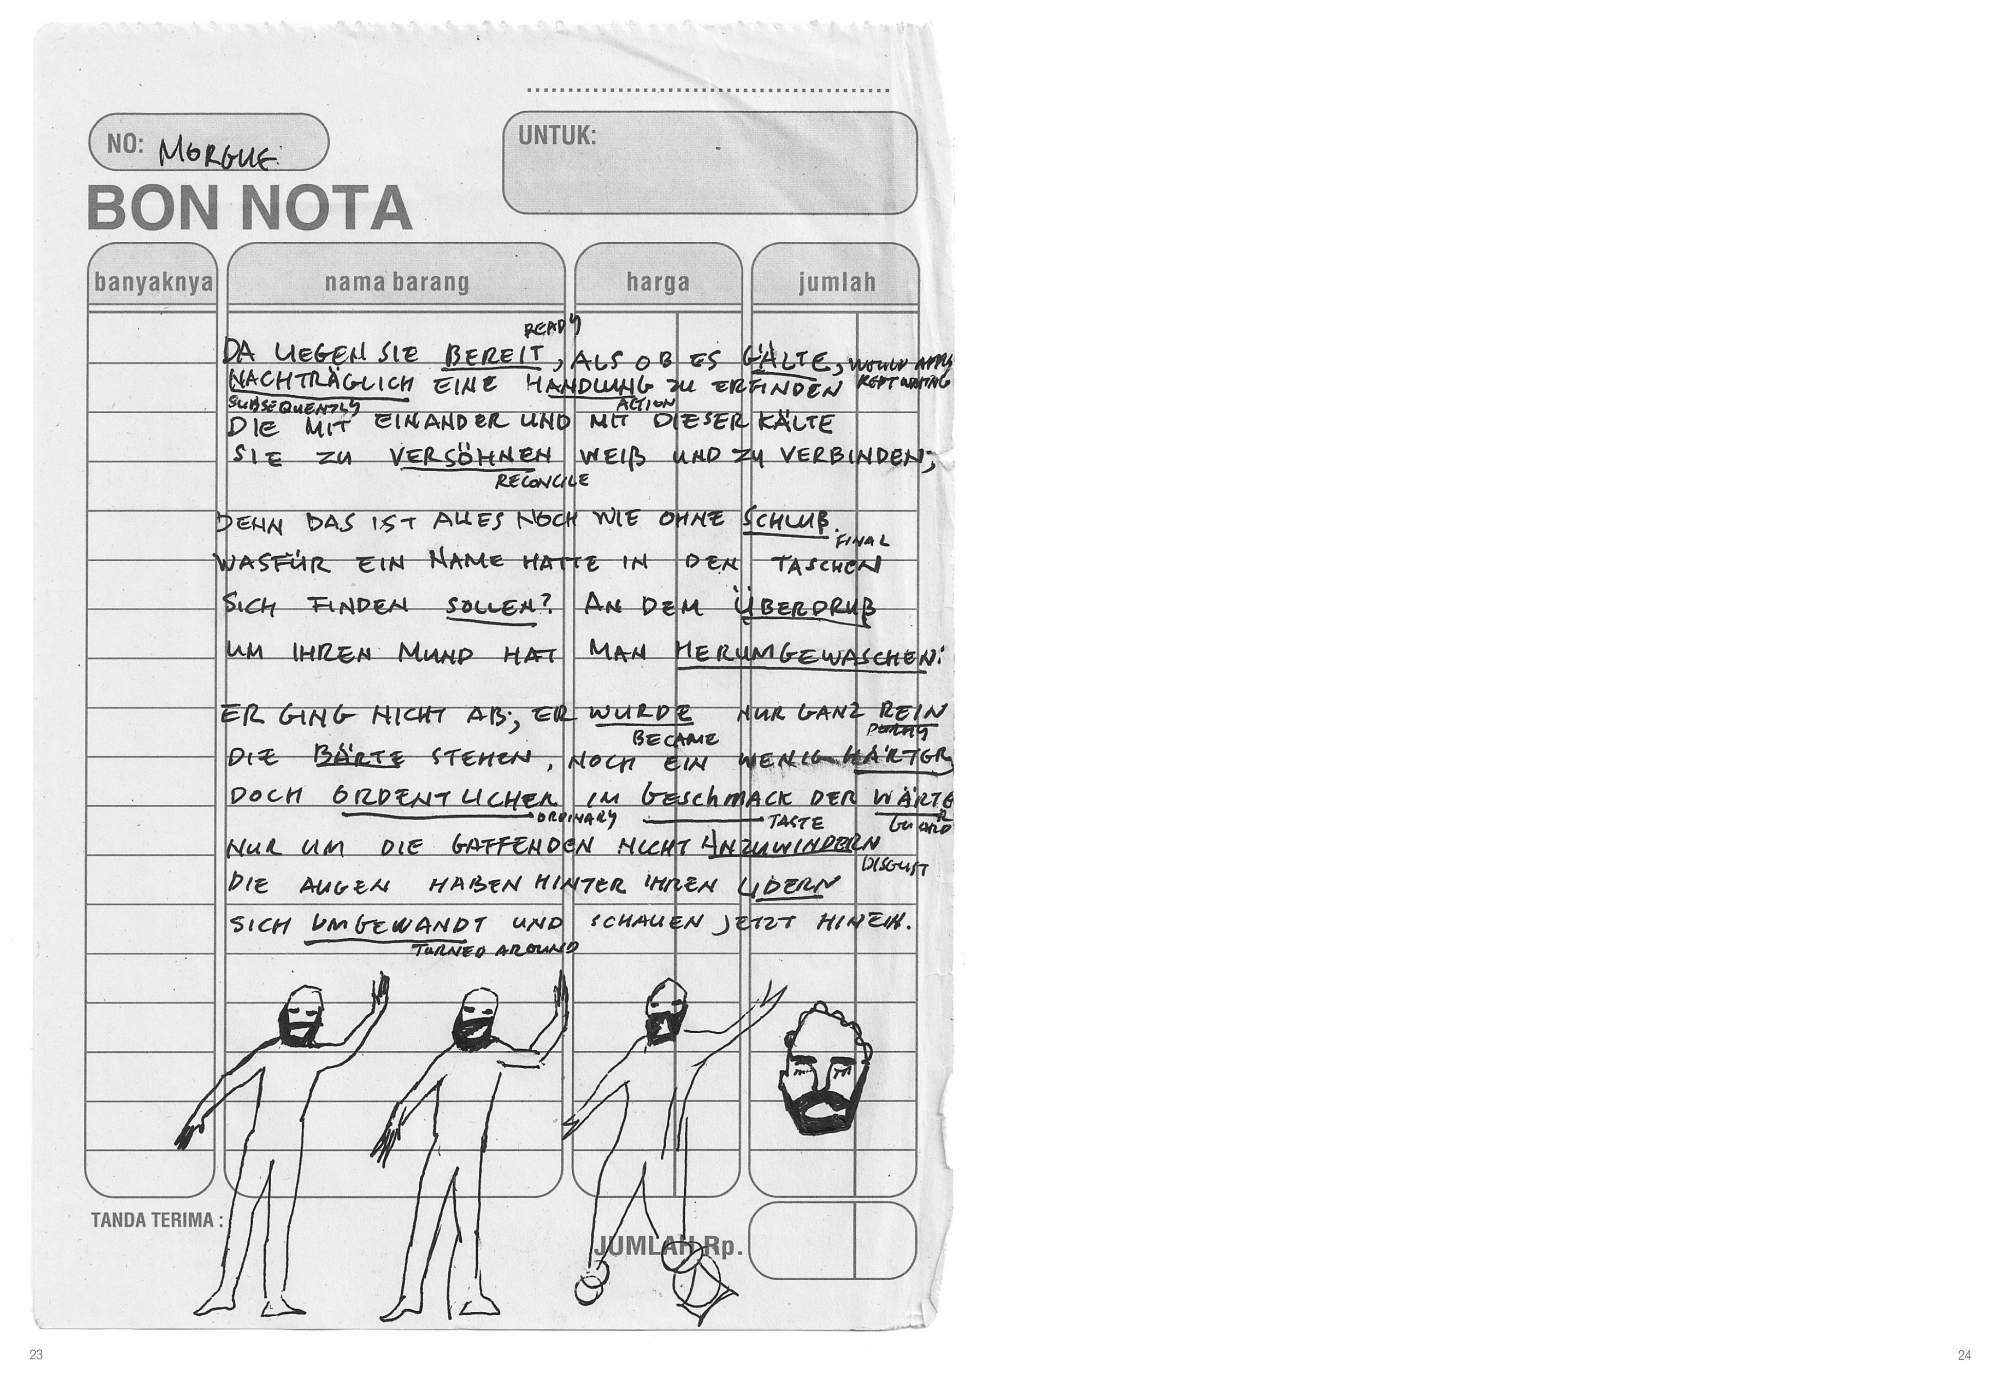 NO: MORGUE
UNTUK:
BON NOTA
banyaknya nama barang harga jumlah
READY
DA LIEGEN SIE BEREIT, ALS OB ES GÄLTE, WOULD APPLY
NACHTRÄGLICH EINE HANDLUNG ZU ERFINDEN
SUBSEQUENTLY ACTION
DIE MIT EINANDER UND MIT DIESER KÄLTE
SIE ZU VERSÖHNEN WEIß UND ZU VERBINDEN;
RECONCILE
DENN DAS IST ALLES NOCH WIE OHNE SCHLUß.
FINAL
WASFÜR EIN NAME HATTE IN DEN TASCHEN
SICH FINDEN SOLLEN? AN DEM ÜBERDRUß
UM IHREN MUND HAT MAN HERUMGEWASCHEN:
ER GING NICHT AB; ER WURDE NUR GANZ REIN
BECAME
DIE BÄRTE STEHEN, NOCH EIN WENIG HÄRTER,
DOCH ORDENTLICHER IM GESCHMACK DER WÄRTER
ORDINARY TASTE GUARD
NUR UM DIE GAFFENDEN NICHT ANZUWINDERN
DISGUST
DIE AUGEN HABEN HINTER IHREN LIDERN
SICH UMGEWANDT UND SCHAUEN JETZT HINEIN.
TURNED AROUND
TANDA TERIMA :
JUMLAH Rp.
23
24